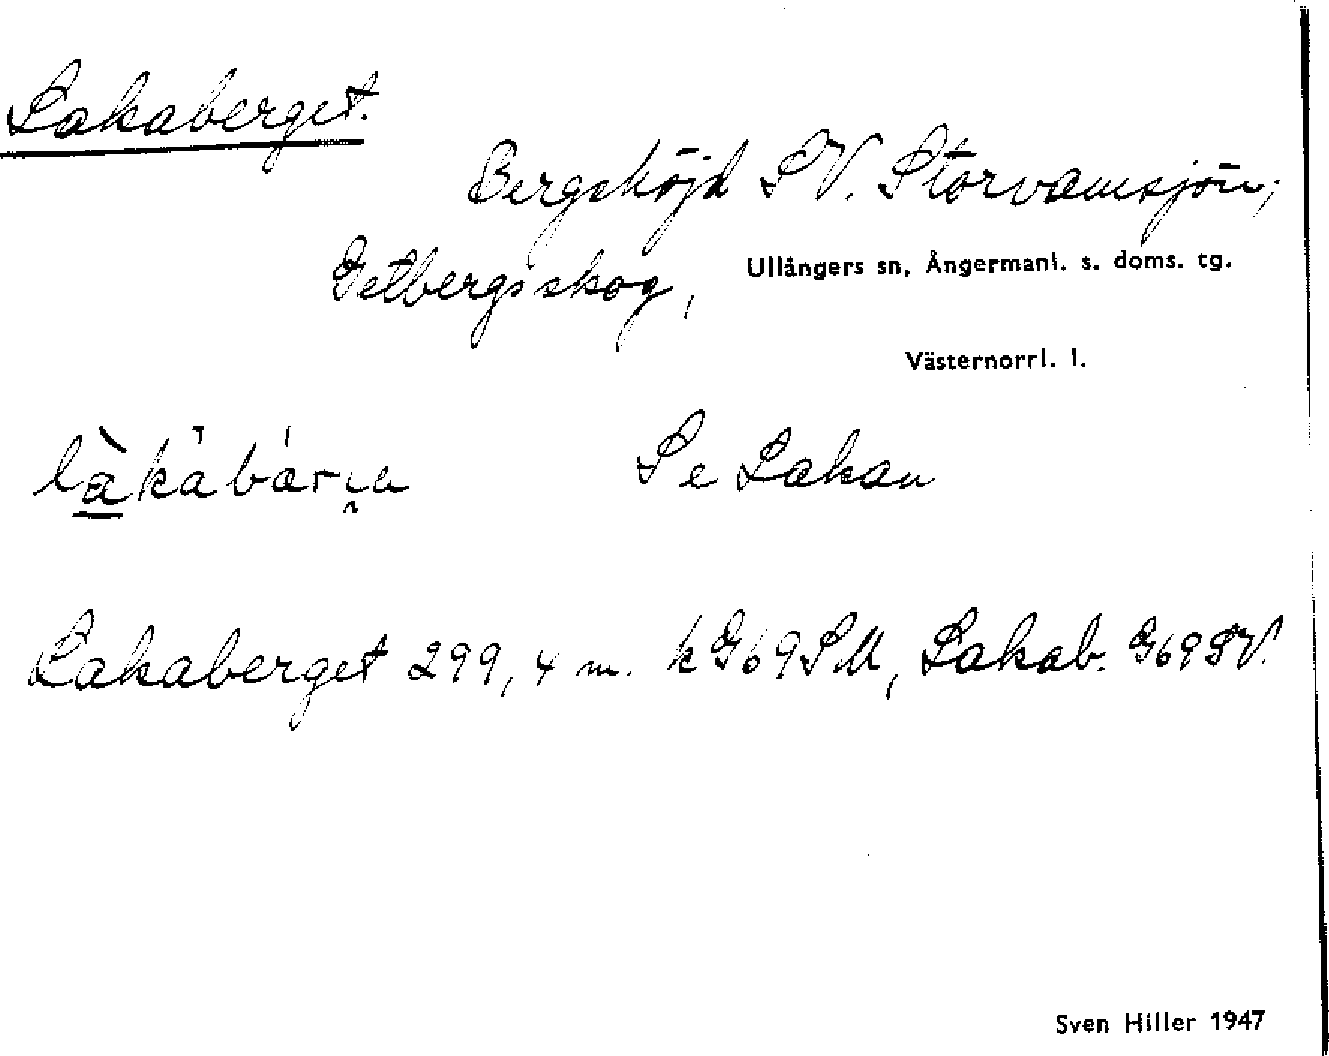 Lakaberget.
Bergshöjd SV. Storvamsjön;
Getbergsskog,
Ullångers sn, Ångermanl. s. doms. tg.
Västernorrl. l.
Se Lakan
Lakaberget 299,4 m. k G69SM, Lakab. G69SV.
Sven Hiller 1947